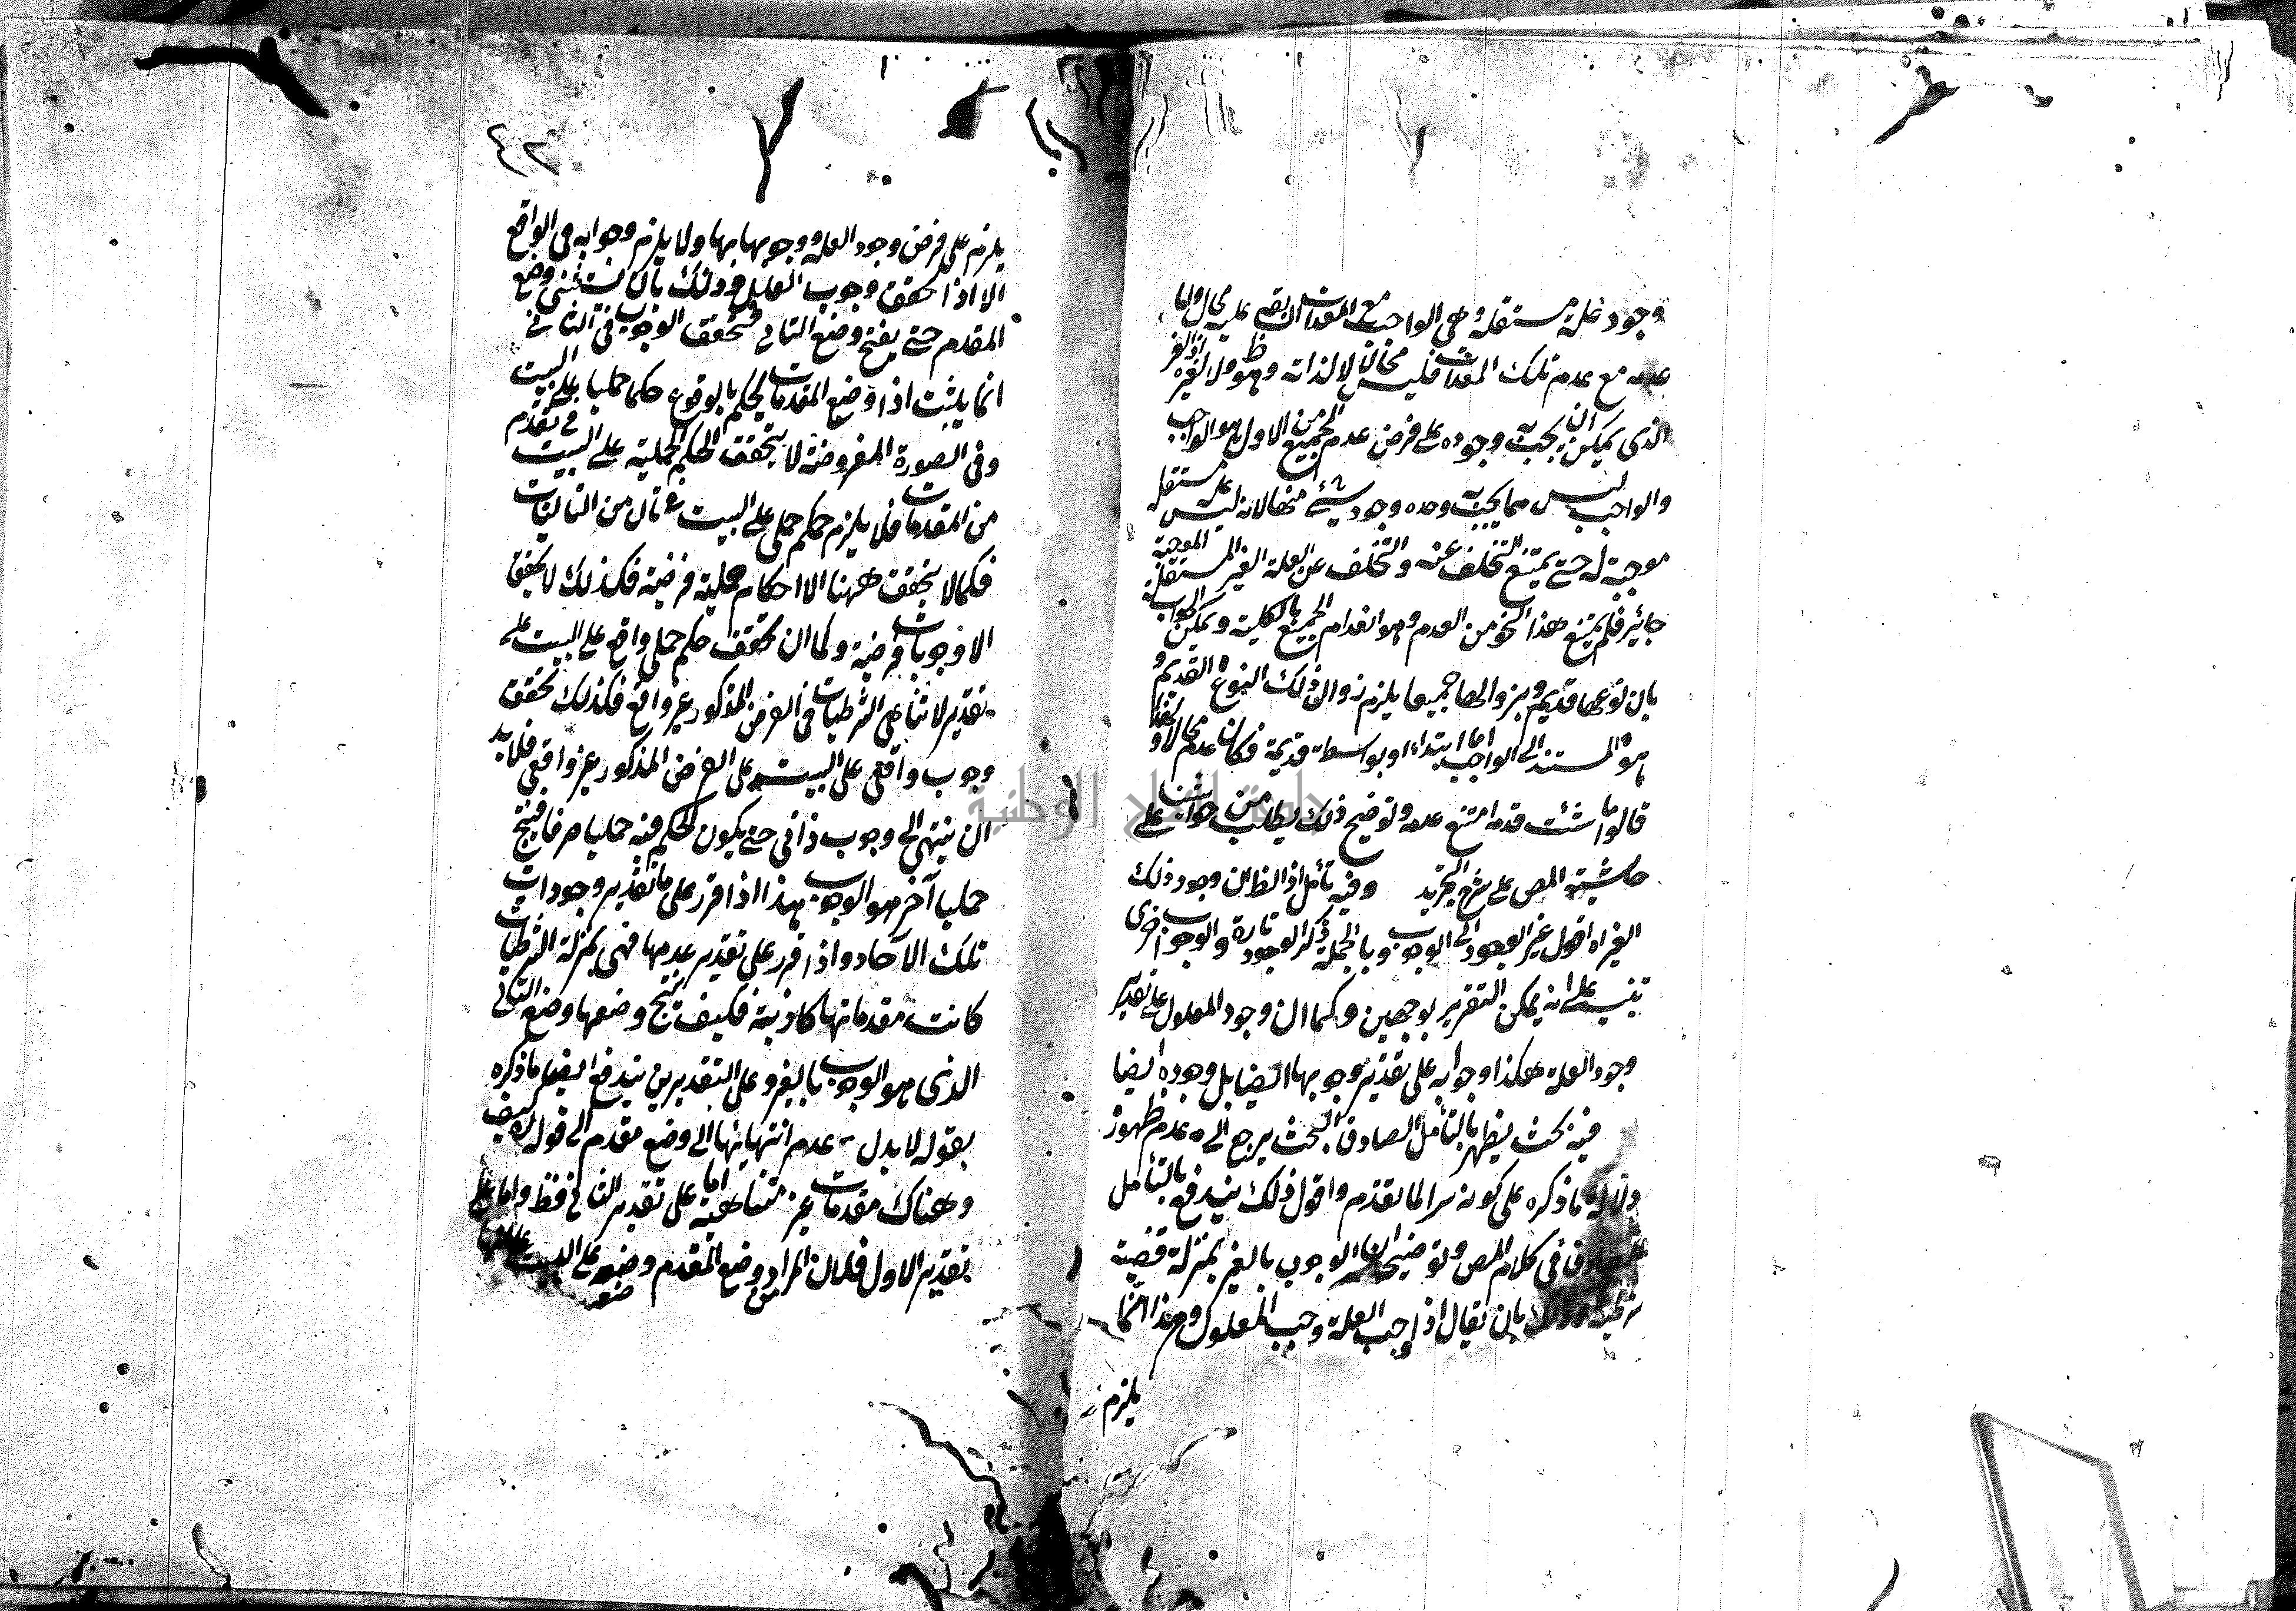 وجود علة مستقلة وهى الواجب مع المعدات ان بقى عليه محال واما
عدمه مع عدم تلك المعدات فليس محالا لا لذاته وهو ظ ولا لغيره اذ الغير
الذى يمكن ان يجب به وجوده على فرض عدم الجميع من الاول هو الواجب
والواجب ليس مما يجب به وحده وجود شئ منها لانه ليس علة مستقلة
موجبة له حتى يمتنع التخلف عنه والتخلف عن العلة الغير المستقلة الموجبة
جائز فلم يمتنع هذا النحو من العدم وهو انعدام الجميع بالكلية ويمكن الجواب
بان نوعها قديم وبزوالها جميعا يلزم زوال ذلك النوع القديم و
هو المستند الى الواجب اما ابتداء او بواسطة قديمة فكان عدمه محالا و لهذا
قالوا ما ثبت قدمه امتنع عدمه وتوضيح ذلك يطلب من حواشينا على
حاشية المص على شرح التجريد وفيه تأمل اذ الظ ان وجود ذلك
الغير اه اقول غير الوجود الى الوجوب وبالجملة ذكر الوجود تارة والوجوب اخرى
تنبيه على انه يمكن التقرير بوجهين وكما ان وجود المعلول على تقدير
وجود العلة هكذا وجوابه على تقدير وجوبها ايضا بل وجوده ايضا
فيه بحث يظهر بالتأمل الصادق البحث يرجع الى عدم ظهور
دلالة ما ذكره على كونه سرا لما تقدم واقول ذلك يندفع بالتأمل
فى كلام المص وتوضيحه ان الوجوب بالغير بمنزلة قضية
شرطية وذلك بان يقال اذا وجب العلة وجب المعلول وهذا انما
يلزم
٤٢
يلزم على فرض وجود العلة ووجوبها بها ولا يلزم وجوابه فى الواقع
الا اذا تحقق وجوب العلل وذلك بان يستثنى وضع
المقدم حتى ينتج وضع التالى فتحقق الوجوب فى التالى
انما يثبت اذا وضع المقدمات ليحكم بالوقوع حكما حمليا على البيت
وفى الصورة المفروضة لا يتحقق الحكم الحملية على البيت فى تقدم
من المقدمات فلا يلزم حكم حملى على البيت فى تال من التاليات
فكما لا يتحقق ههنا الا احكام حملية فرضية فكذلك لا يتحقق
الا وجوبات فرضية وكما ان تحقق حكم حملى واقع على البيت على
تقدير لا تناهى الشرطيات فى الفرض المذكور غير واقع فكذلك تحقق
وجوب واقعى على البيت على الفرض المذكور غير واقعى فلا بد
ان ينتهى الى وجوب ذاتى حتى يكون الحكم فيه حمليا صرفا فينتج
حمليا آخر هو الوجوب هذا اذا قرر على ما تقدير وجودات
تلك الآحاد واذا قرر على تقدير عدمها فهى بمنزلة الشرطيات
كانت مقدماتها كاذبة فكيف ينتج وضعها وضع التالى
الذى هو الوجوب بالغير وعلى التقديرين يندفع ايضا ما ذكره
بقوله لا بدل عدم انتهائها الى وضع مقدم الى قوله كيف
وهناك مقدمات غير متناهية اما على تقدير الثانى فظ واما على
تقدير الاول فلان المراد من وضع المقدم وضعه على البيت